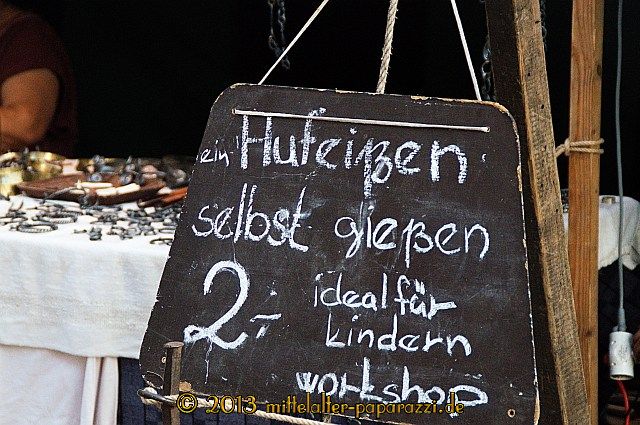 ein Hufeißen
selbst gießen
2,- ideal für
kindern
workshop
© 2013 mittelalter-paparazzi.de